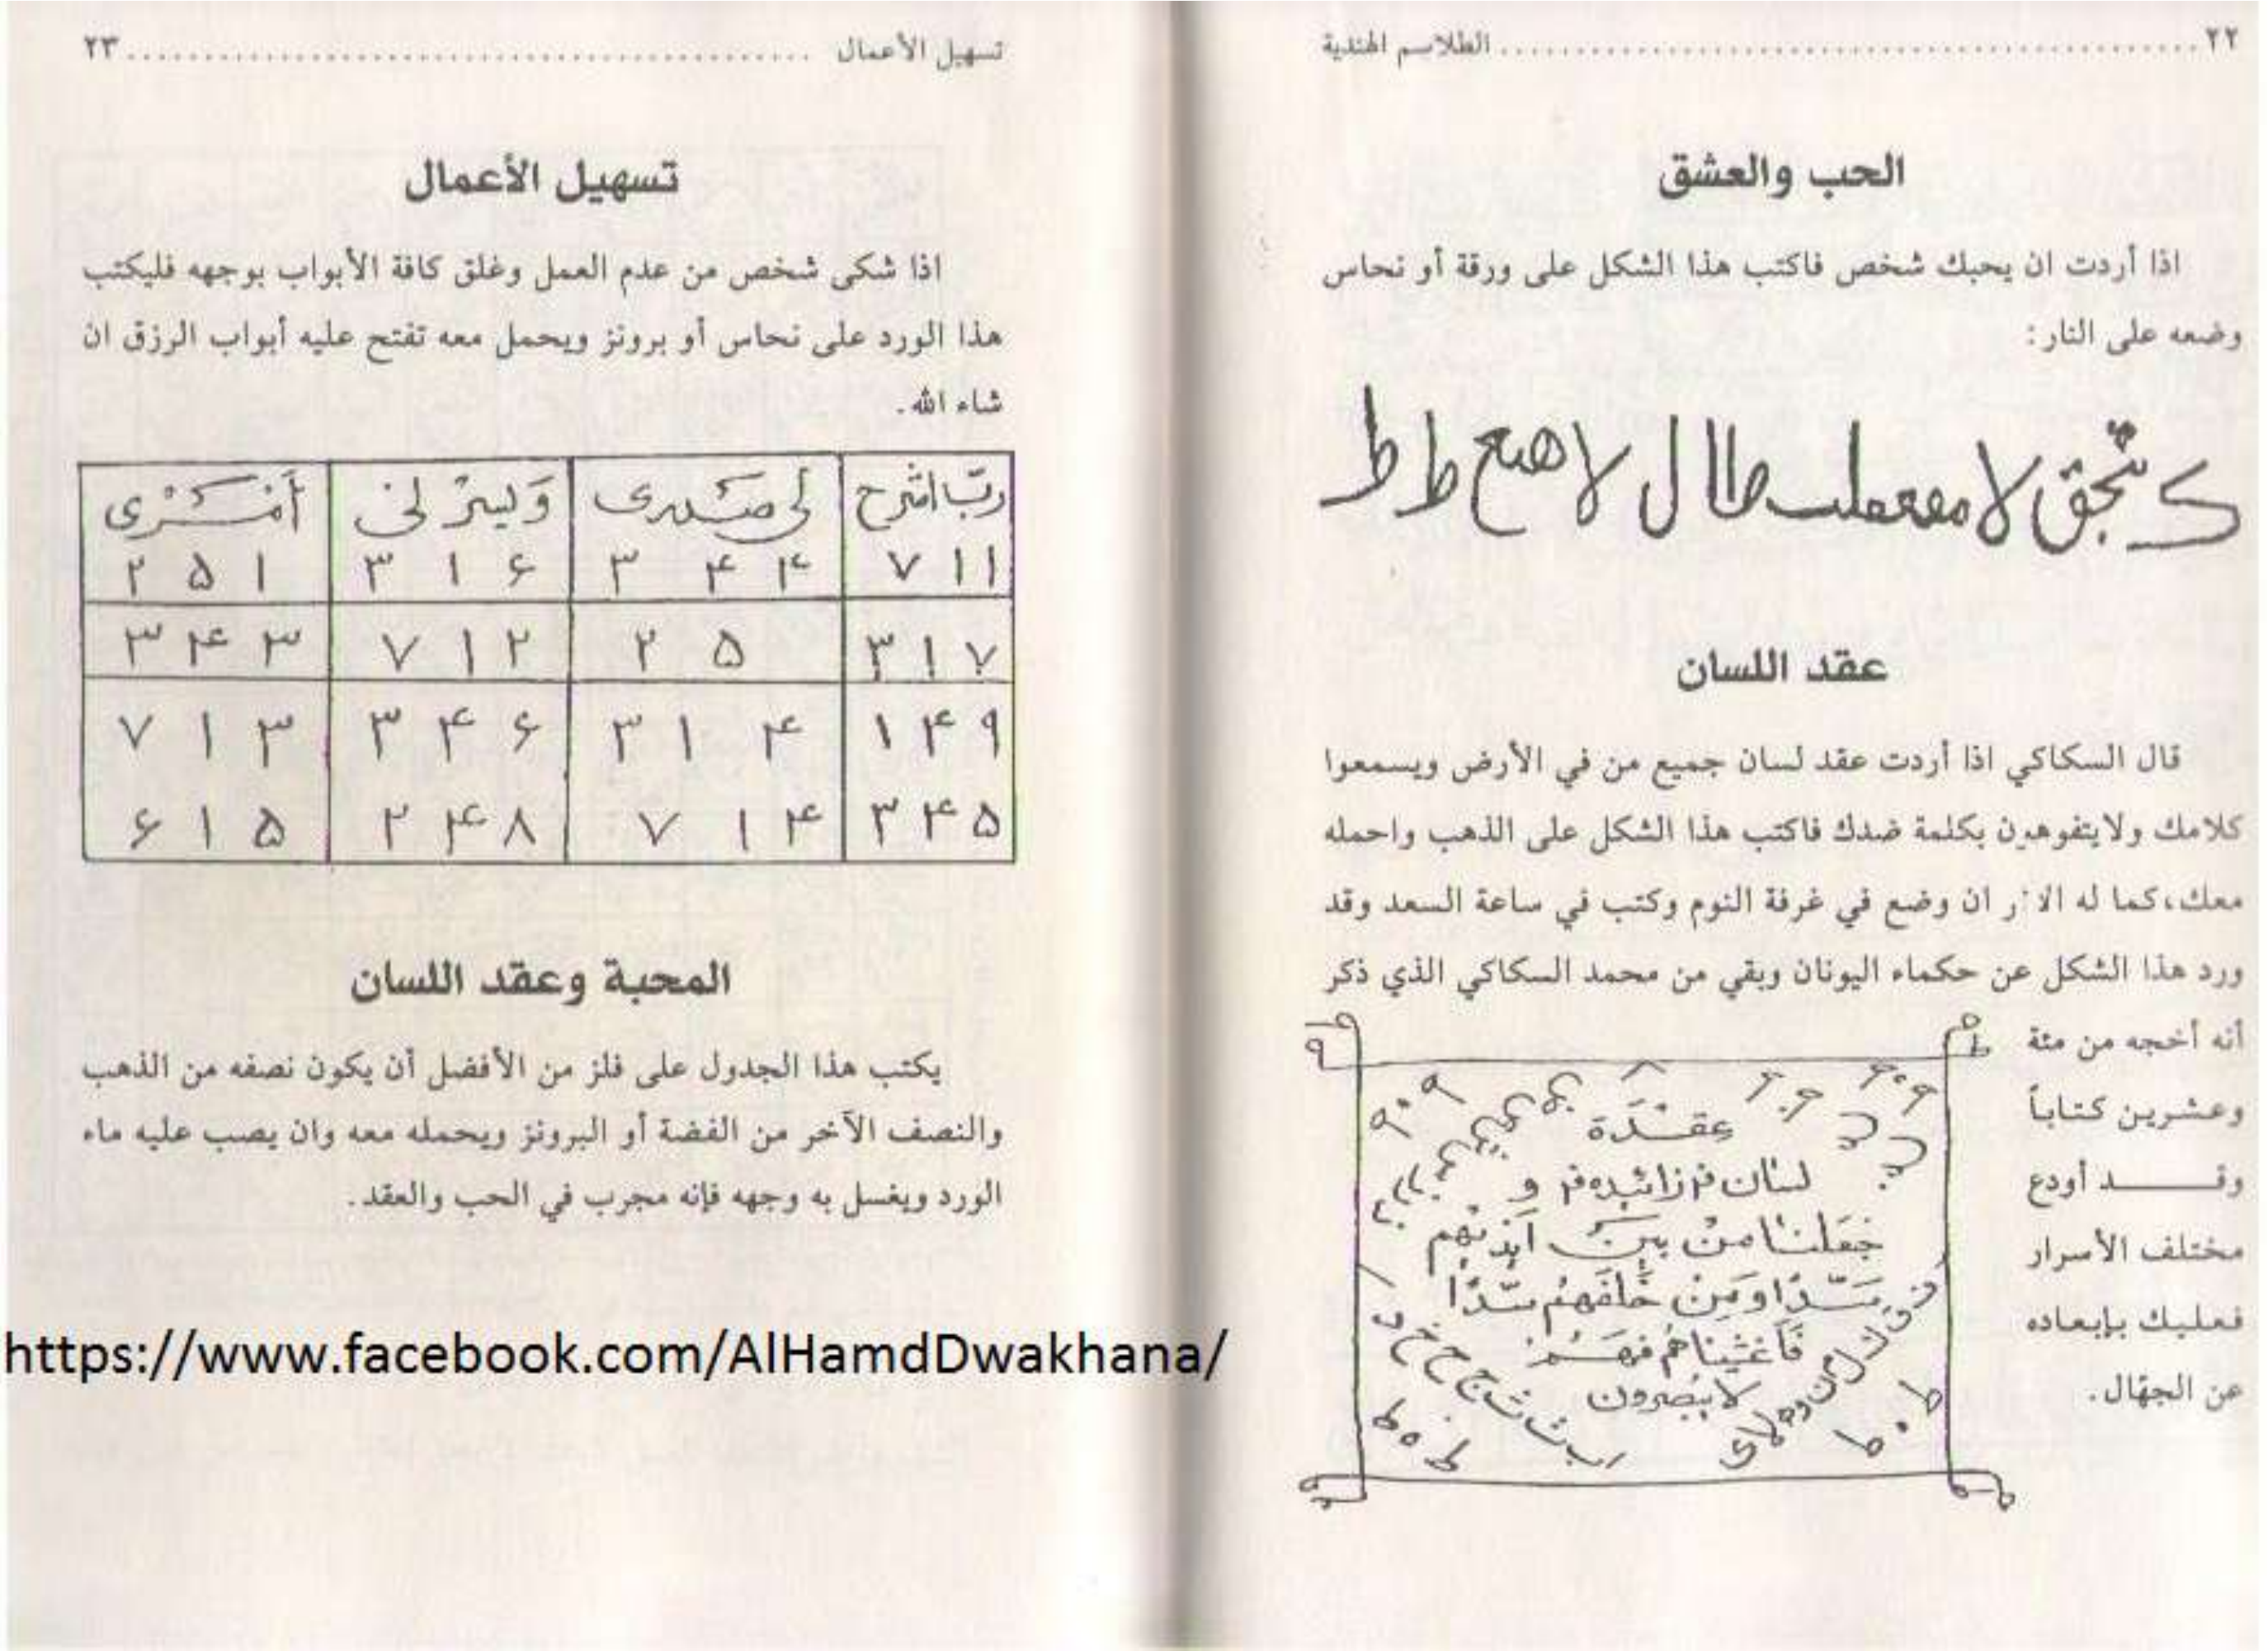 ٢٢ ........ الطلاسم الهندية
الحب والعشق
اذا أردت ان يحبك شخص فاكتب هذا الشكل على ورقة أو نحاس
وضعه على النار:
عقد اللسان
قال السكاكي اذا أردت عقد لسان جميع من في الأرض ويسمعوا
كلامك ولايتفوهون بكلمة ضدك فاكتب هذا الشكل على الذهب واحمله
معك، كما له ان وضع في غرفة النوم وكتب في ساعة السعد وقد
ورد هذا الشكل عن حكماء اليونان وبقي من محمد السكاكي الذي ذكر
أنه أخجه من مئة
وعشرين كتاباً
وقـــد أودع
مختلف الأسرار
فعليك بإبعاده
عن الجهّال.
جعلنا من بين
سدًا ومن خلفهم سدًا
فأغشيناهم فهم
لا يبصرون
تسهيل الأعمال ........ ٢٣
تسهيل الأعمال
اذا شكى شخص من عدم العمل وغلق كافة الأبواب بوجهه فليكتب
هذا الورد على نحاس أو برونز ويحمل معه تفتح عليه أبواب الرزق ان
شاء الله.
ربّ اشرح لي صدرى ويسر لى أمرى
٧١١ ٣۴۴ ٣١۶ ٢۵١
٣١٧ ٢۵ ٧١٢ ٣۴٣
١۴٩ ٣١۴ ٣۴۶ ٧١٣
٣۴۵ ٧١۴ ٢۴٨ ۶١۵
المحبة وعقد اللسان
يكتب هذا الجدول على فلز من الأفضل أن يكون نصفه من الذهب
والنصف الآخر من الفضة أو البرونز ويحمله معه وان يصب عليه ماء
الورد ويغسل به وجهه فإنه مجرب في الحب والعقد.
https://www.facebook.com/AlHamdDwakhana/